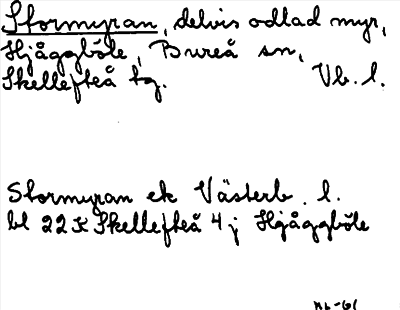 Stormyran, delvis odlad myr,
Hjåggböle, Bureå sn,
Skellefteå tg. Vb. l.
Stormyran ek Västerb. l.
bl 22 K Skellefteå 4 j Hjåggböle